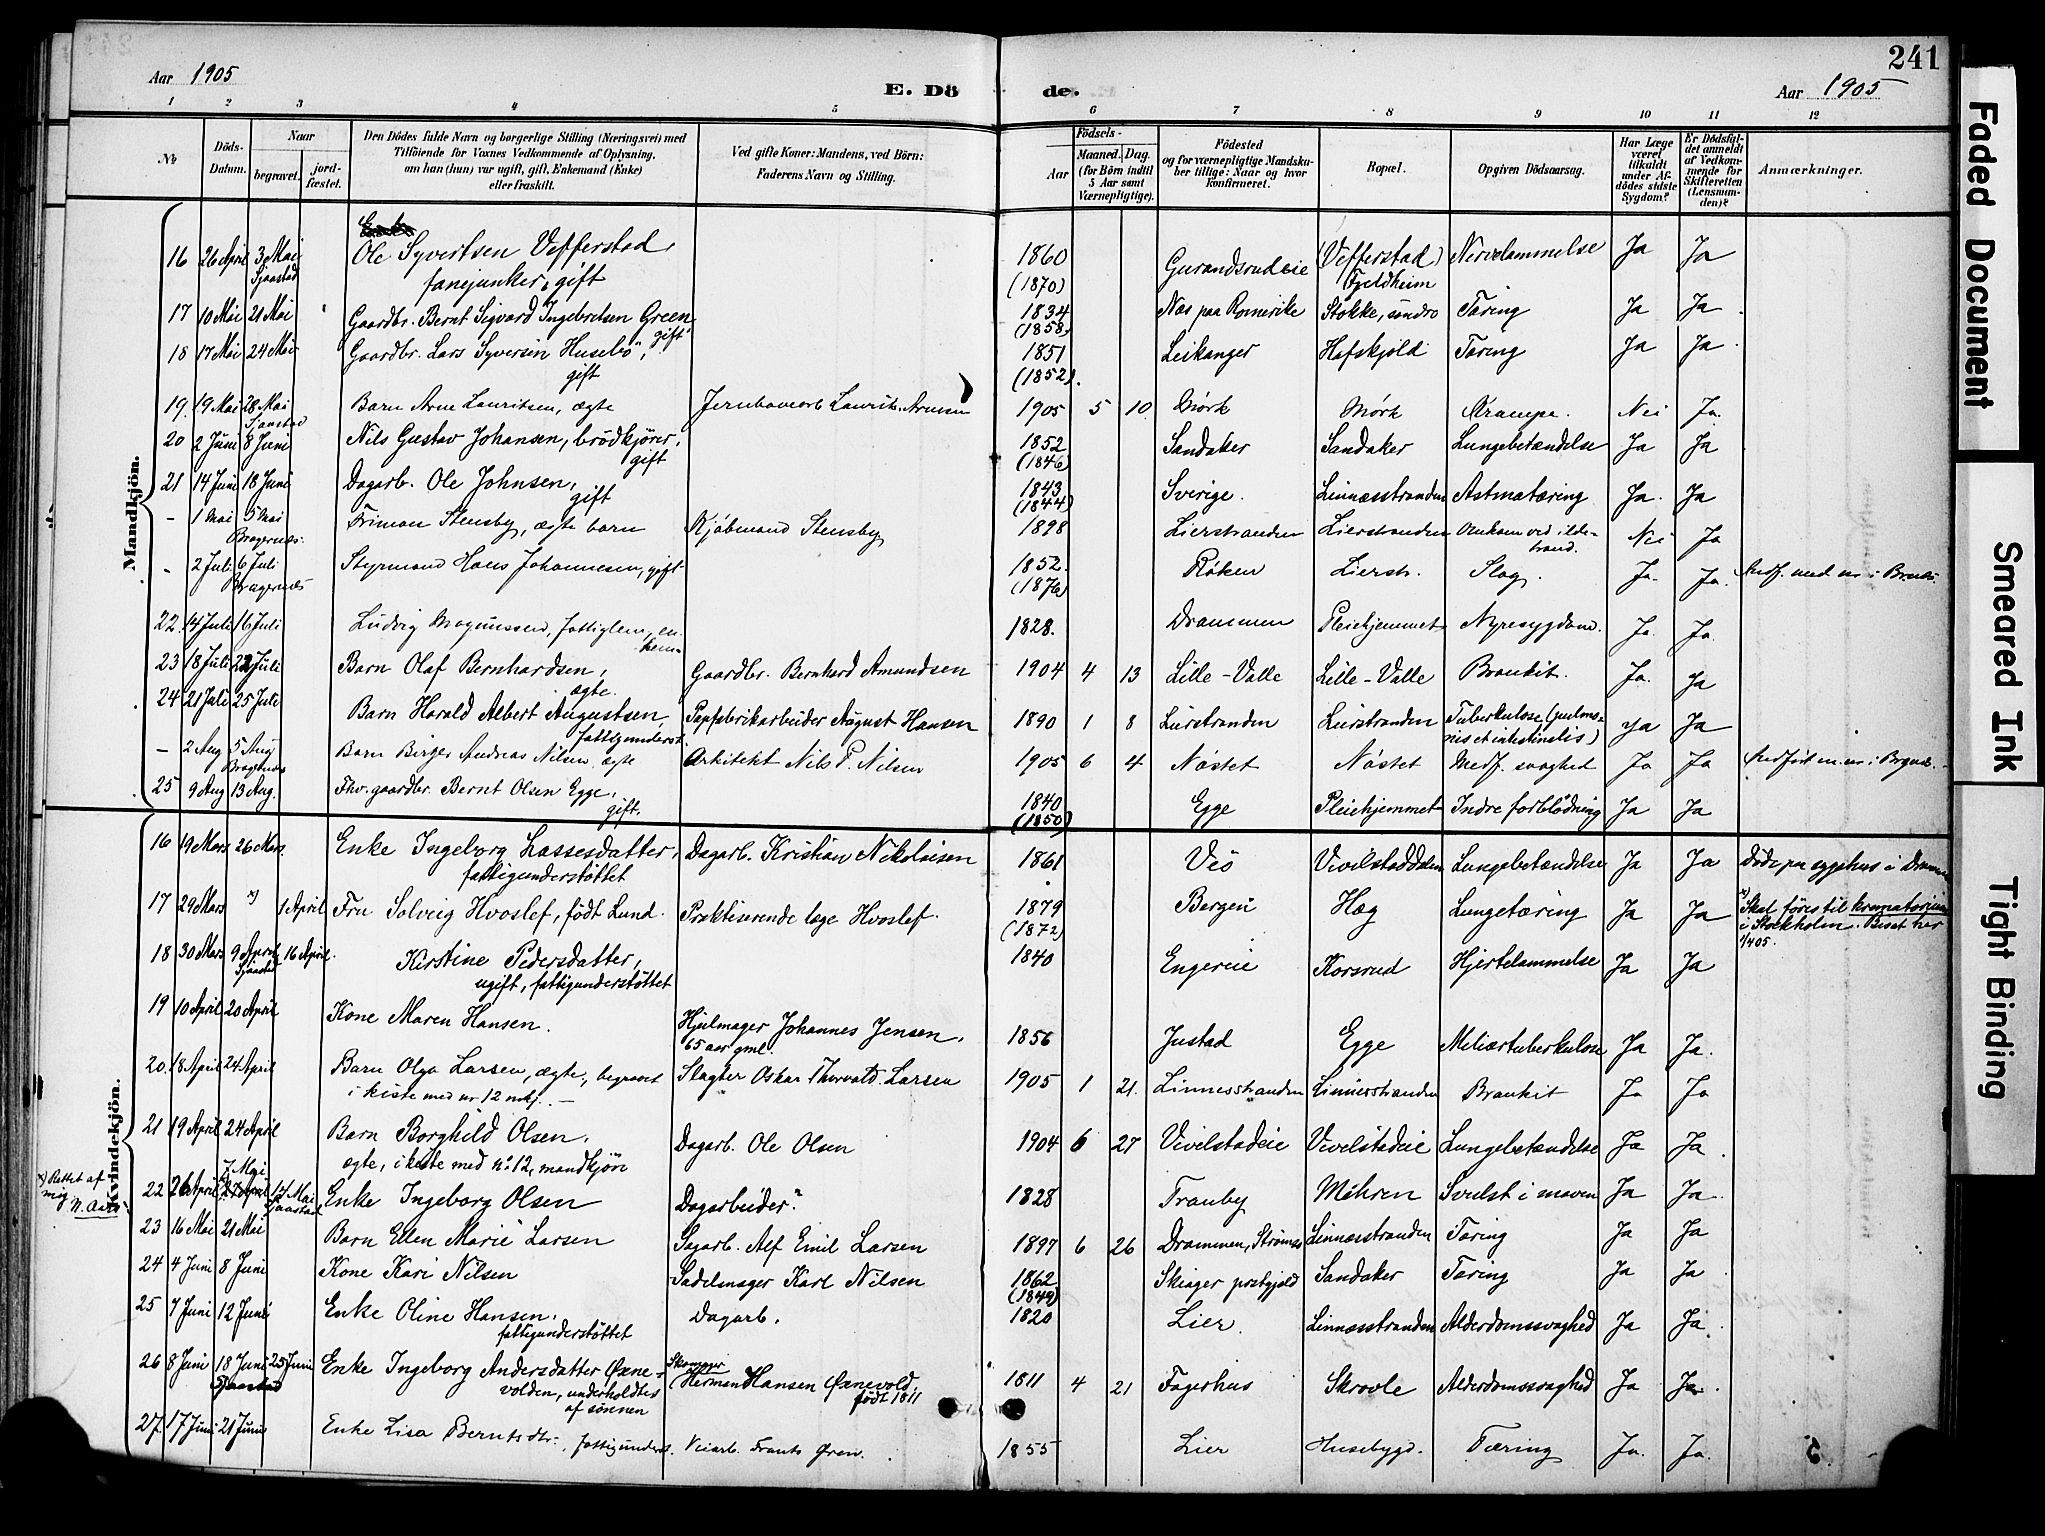 241
Aar 1905 E. Dö de. Aar 1905
1 2 3 4 5 6 7 8 9 10 11 12
No
Döds-Datum.
Naar
begravet.
jord-fæstet.
Den Dödes fulde Navn og borgerlige Stilling (Næringsvei) med
Tilföiende for Voxnes Vedkommende af Oplysning,
om han (hun) var ugift, gift, Enkemand (Enke)
eller fraskilt.
Ved gifte Koner: Mandens, ved Börn:
Faderens Navn og Stilling.
Födsels-
Aar
Maaned. Dag.
(for Börn indtil
5 Aar samt
Værnepligtige).
Födested
og for værnepligtige Mandsku-
ber tillige: Naar og hvor
konfirmeret.
Bopæl.
Opgiven Dödsaarsag.
Har Læge
været
tilkaldt
under Af-
dödes sidste
Sygdom?
Er Dödsfal-
det anmeldt
af Vedkom-
mende for
Skifteretten
(Lensman-
den)?
Anmærkninger.
Mandkjön.
16 26 April 3 Mai Ole Syvertsen Vefferstad, 1860 Gurandsrudeie (Vefferstad) Nervelammelse Ja Ja
Sjaastad fanejunker, gift (1870) Fjeldheim
17 10 Mai 21 Mai Gaardbr. Bernt Sigvard Ingebretsen Green, 1834 Nes paa Romerike Stokke, søndre Tæring Ja Ja
gift (1858)
18 17 Mai 24 Mai Gaardbr. Lars Syversen Husebö, 1851 Leikanger Hafskjold Tæring Ja Ja
gift (1852).
19. 19 Mai 28 Mai Barn Arne Lauritsen, ægte Jernbanearb. Laurits Arnesen 1905 5 10 Mörk Mörk Krampe. Nei Ja.
Sjaastad
20 2 Juni 8 Juni Nils Gustav Johansen, brödkjører, 1852 Sandaker Sandaker Lungebetændelse Ja Ja
gift (1846)
21 14 Juni 18 Juni Dagarb. Ole Johnsen, 1843 Sverige. Linnesstranden Astmatæring Ja. Ja
gift (1844)
- 1 Mai 5 Mai Stensby, ægte barn Kjöbmand Stensby 1898 Lierstranden Lierstranden Omkom ved ilde- Nei Ja
Bragernes. brand.
- 2 Juli 6 Juli Styrmand Hans Johannesen, gift 1852. Röken Lierstr. Slag. Ja. Ja.
Bragernes (1876)
22. 14 Juli 16 Juli Ludvig Magnussen, fattiglem, en- 1828. Drammen Pleiehjemmet Nyresygdom. Ja. Ja.
23 18 Juli 22 Juli Barn Olaf Bernhardsen, Gaardbr. Bernhard Amundsen 1904 4 13 Lille-Valle Lille-Valle Bronkit. Ja. Ja
ægte.
24 21 Juli 25 Juli Barn Harald Albert Augustsen, Papfabrikarbeider August Hansen 1890 1 8 Lierstranden Lierstranden Tuberkulose (pulmo- Ja Ja
fattigunderst. nis et intestinalis)
- 2 Aug 5 Aug Barn Birger Andreas Nilsen, ægte Arkitekt Nils P. Nilsen 1905 6 4 Nöstet Nöstet Medf. svaghed Ja Ja
Bragernes
25 9 Aug 13 Aug. Fhv. gaardbr. Bernt Olsen Egge, 1840 Egge Pleiehjemmet Indre forblödning Ja Ja
gift. (1850)
Kvindekjön.
16 19 Mars 26 Mars. Enke Ingeborg Lassesdatter, Dagarb. Kristian Nikolaisen 1861 Veö Vivilstaddalen Lungebetændelse Ja Ja Döde paa sygehus i Drammen
fattigunderstöttet
17 29 Mars x) 1 April Fru Solveig Hvoslef, födt Lund. Praktiserende læge Hvoslef. 1879 Bergen Hæg Lungetæring Ja Ja x) Skal föres til krematorium
(1872) i Stockholm. Biset her
1/4 05.
18 30 Mars 9 April 16 April. Kirstine Pedersdatter, 1840 Engereie Korsrud Hjertelammelse Ja Ja
Sjaastad ugift, fattigunderstöttet
19 10 April 20 April Kone Maren Hansen. Hjulmager Johannes Jensen, 1856 Justad Egge Meliærtuberkulose Ja Ja.
65 aar gml.
20. 18 April 24 April Barn Olga Larsen, ægte, begravet Slagter Oskar Thorvald Larsen 1905 1 21. Linnesstranden Linnesstranden Bronkit Ja Ja
i kiste med nr 12 mkj. -
21 19 April 24 April Barn Borghild Olsen, Dagarb. Ole Olsen 1904 6 27 Vivelstadeie Vivelstadeie Lungebetændelse Ja Ja.
ægte, i kiste med no 12, mandkjön
x) Rettet af
mig
22 26 April 7 Mai 14 Mai Enke Ingeborg Olsen Dagarbeider? 1828 Tranby Mehren Svulst i maven Ja Ja.
27 April Sjaastad
23 16 Mai 21 Mai Barn Ellen Marie Larsen Sagarb. Alf Emil Larsen 1897 6 26 Drammen, Strömsö Linnesstranden Tæring Ja Ja
24 4 Juni 8 Juni Kone Kari Nilsen Sadelmager Karl Nilsen 1862 Skiager Sandaker Tæring Ja Ja
(1849)
25 7 Juni 12 Juni Enke Oline Hansen, Dagarb. 1820 Lier. Linnesstranden Alderdomssvaghed Ja Ja.
fattigunderstöttet
26 8 Juni 18 Juni 25 Juni Enke Ingeborg Andersdatter Øxne- Skomager 1811 4 21 Fagerhus Skrovle Alderdomssvaghed Ja Ja.
Sjaastad volden, underholdtes Herman Hansen Øxnevold
af sönnen födt 1811
27. 17 Juni 21 Juni Enke Lisa Berntsdtr., fattigunderst. Veiarb. Frants Øren. 1855 Lier Husebygd. Tæring Ja. Ja.
Faded Document
Smeared Ink
Tight Binding